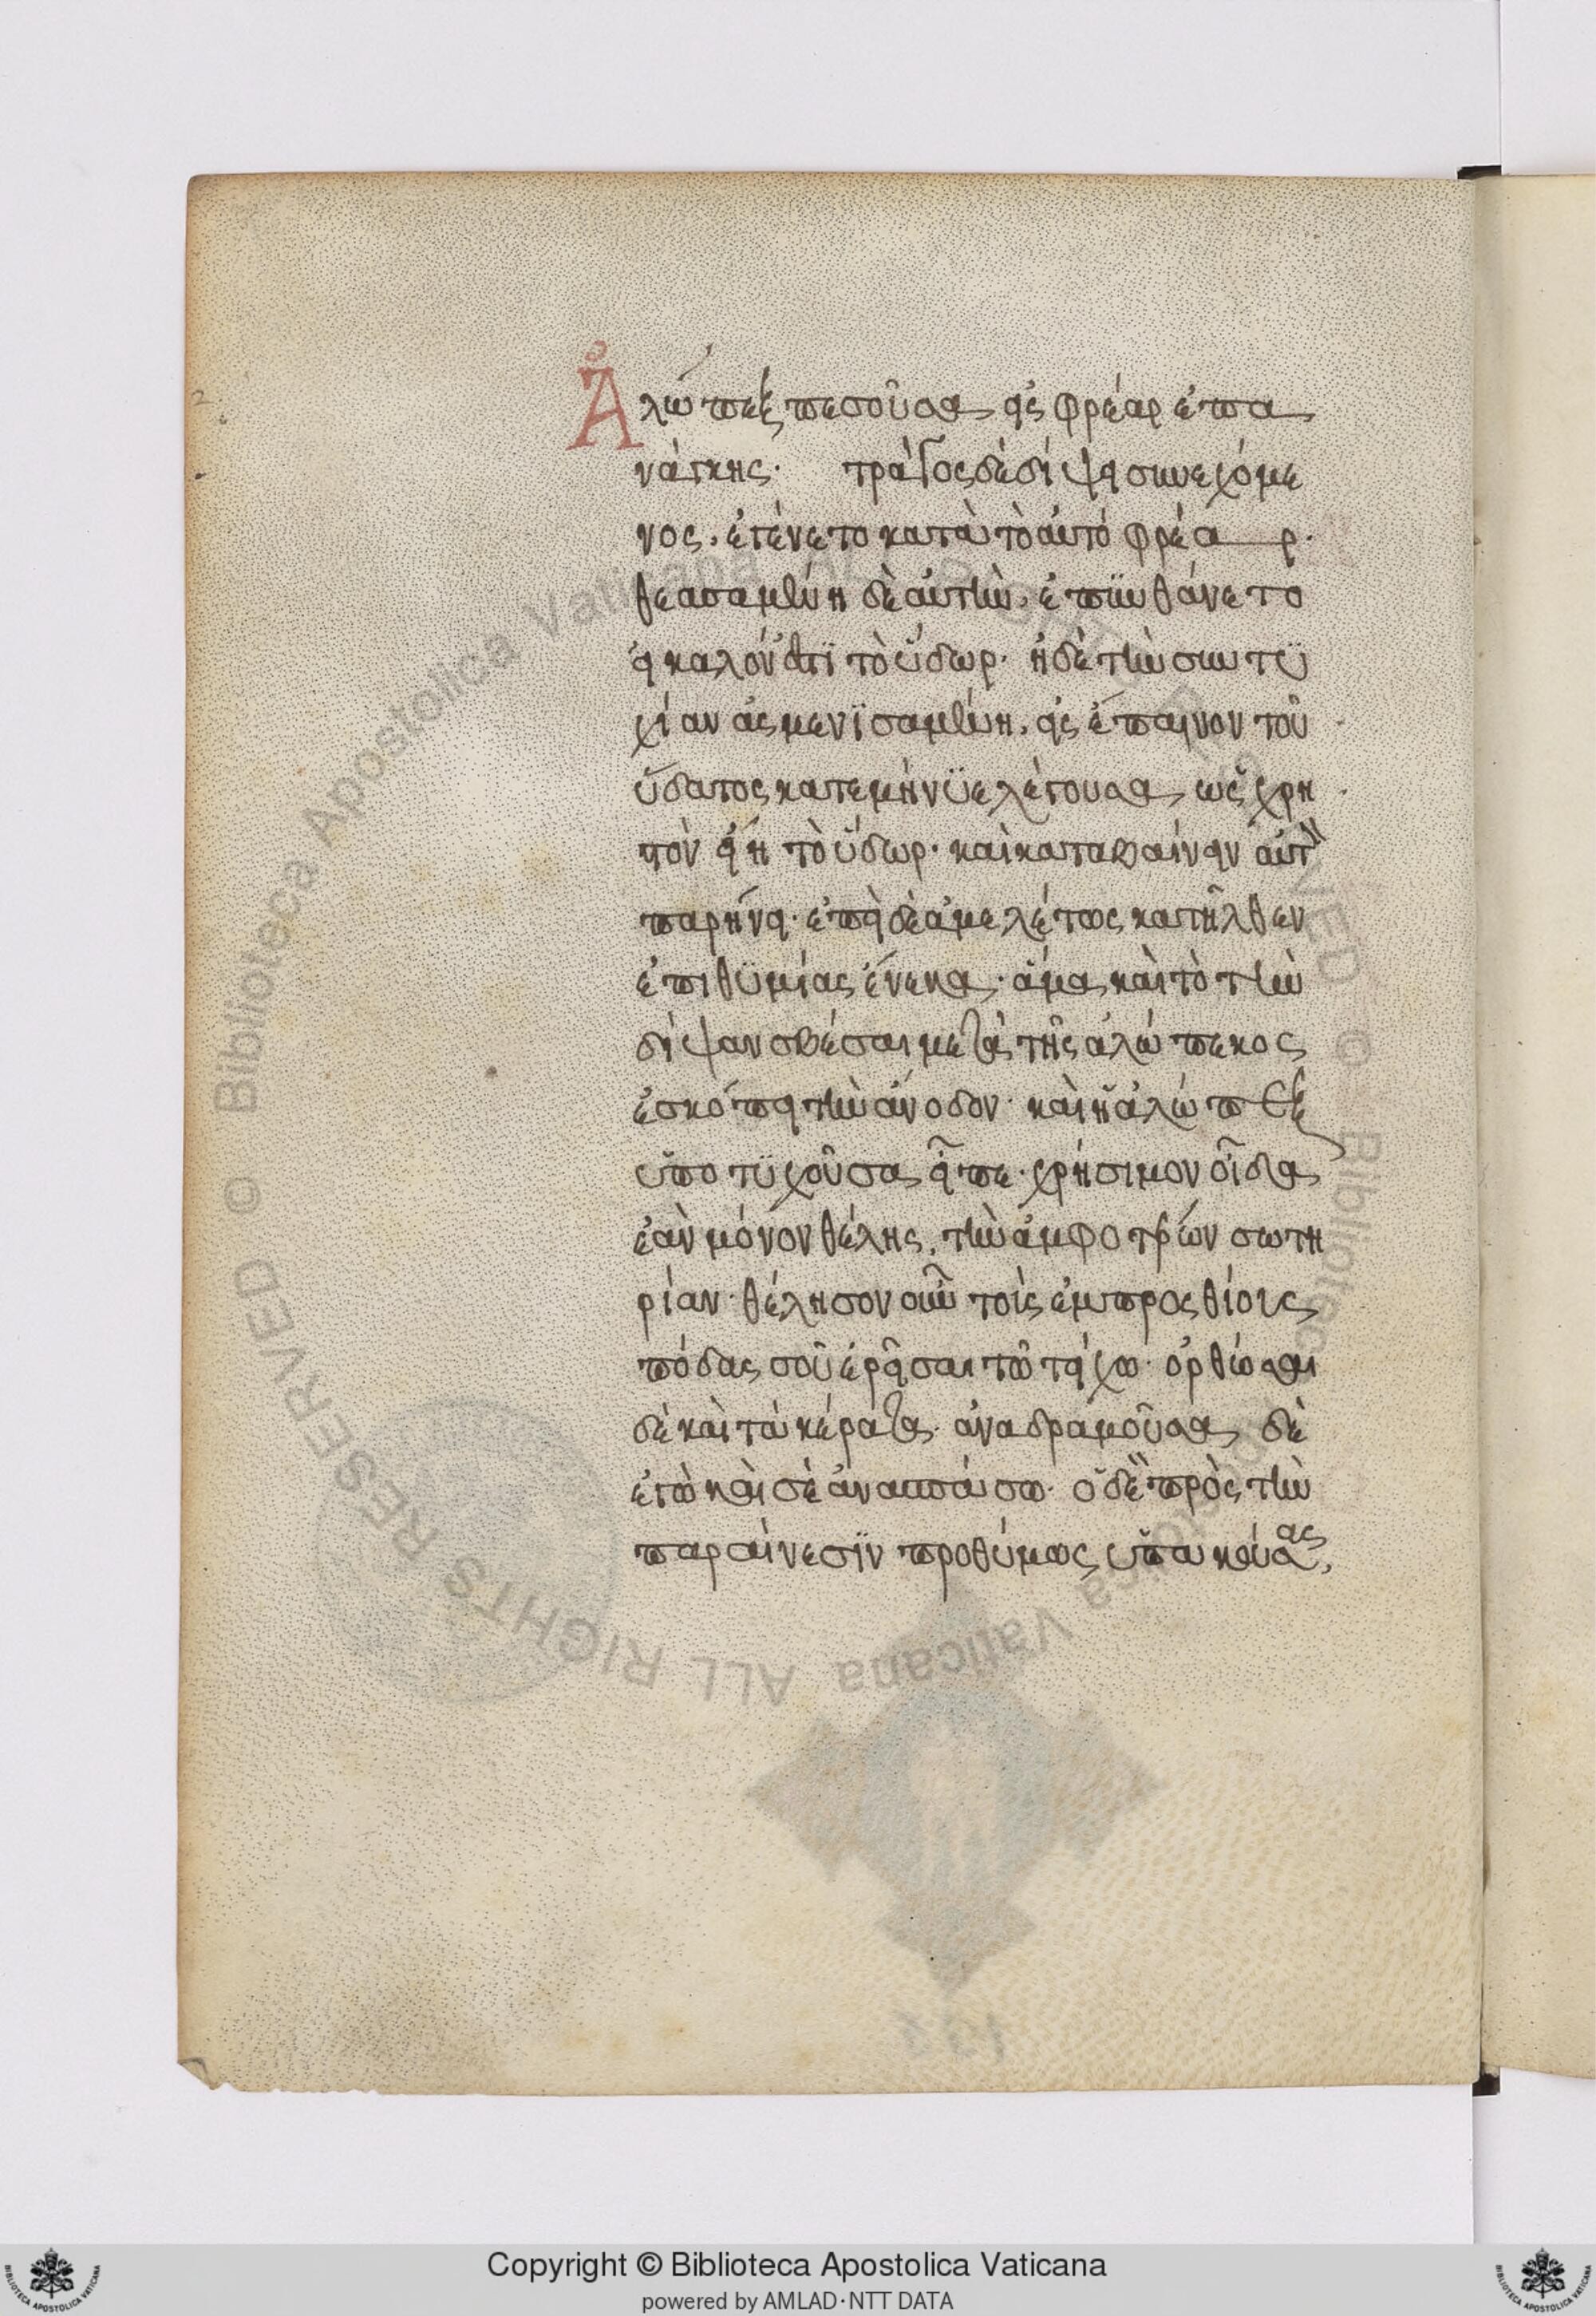 Ἀλώπηξ πεσοῦσα εἰς φρέαρ ἐπα
νάγκης. τράγος δὲ δίψη συνεχόμε
νος. ἐγένετο κατὰ τὸ αὐτό φρέαρ.
θεασαμένη δὲ αὐτὴν, ἐπϋνθάνετο
εἰ καλόν ἐστϊ τὸ ὕδωρ. ἡ δὲ τὴν συντϋ
χίαν ἀσμενϊσαμένη, εἰς ἔπαινον τοῦ
ὕδατος κατεμήνϋε λέγουσα, ὡς χρη
στὸν εἴη τὸ ὕδωρ. καὶ καταβαίνειν αὐτὴν
παρήνει. ἐπεὶ δὲ ἀμελέτως κατῆλθεν
ἐπιθϋμίας ἕνεκα. ἅμα καὶ τὸ τὴν
δίψαν σβέσαι μετὰ τῆς ἀλώπεκος
ἐσκόπει τὴν ἄνοδον. καὶ ἡ ἀλώπηξ
ὑποτϋχοῦσα εἶπε. χρήσιμον οἶδα
ἐὰν μόνον θέλης, τὴν ἀμφοτέρων σωτη
ρίαν. θέλησον οὖν τοῖς ἐμπροσθίοις
πόδας σοῦ ἐρεῖσαι τῶ τείχω. ὀρθῶσαι
δὲ καὶ τὰ κέρατα. ἀναδραμοῦσα δὲ
ἐγὼ καὶ σὲ ἀνασπάσω. ὁ δὲ πρὸς τὴν
παραίνεσϊν προθύμως ὑπακούσας,
Copyright © Biblioteca Apostolica Vaticana
powered by AMLAD·NTT DATA